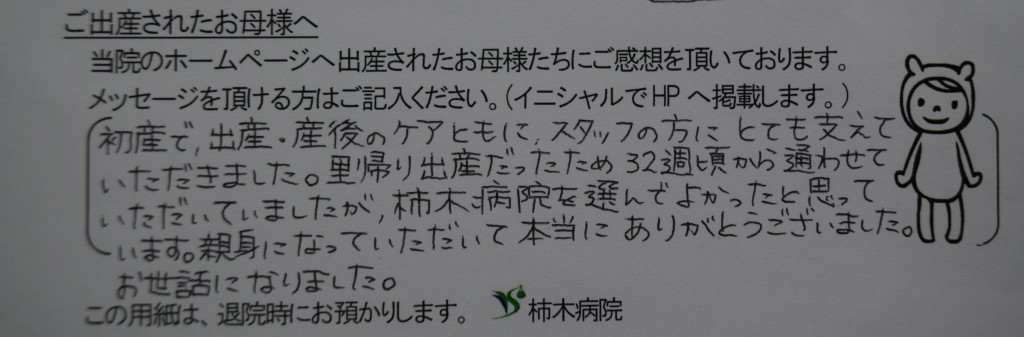 ご出産されたお母様へ
当院のホームページへ出産されたお母様たちにご感想を頂いております。
メッセージを頂ける方はご記入ください。（イニシャルでHPへ掲載します。）
初産で,出産・産後のケアともに,スタッフの方にとても支えて
いただきました。里帰り出産だったため32週頃から通わせて
いただいていましたが,柿木病院を選んでよかったと思って
います。親身になっていただいて本当にありがとうございました。
お世話になりました。
この用紙は、退院時にお預かりします。 柿木病院